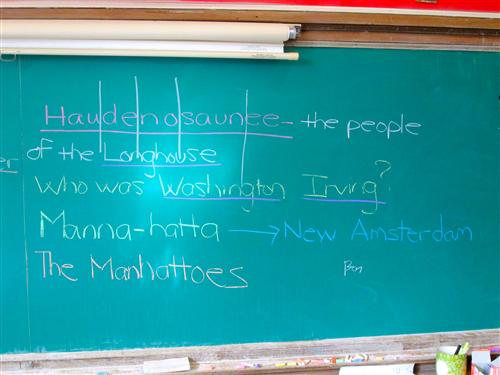 Haudenosaunee - the people
of the Longhouse
Who was Washington Irving?
Manna-hatta → New Amsterdam
The Manhattoes
Ben